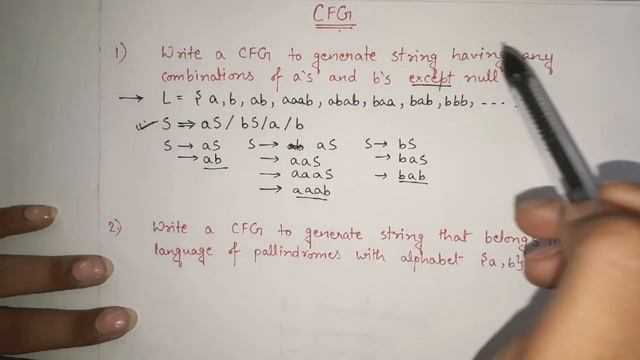 CFG
1) Write a CFG to generate string having any
combinations of a's and b's except null
→ L = { a, b, ab, aaab, abab, baa, bab, bbb, ----
S ⇒ aS / bS / a / b
S → aS S → aS S → bS
→ ab → aaS → baS
→ aaaS → bab
→ aaab
2) Write a CFG to generate string that belongs
language of pallindromes with alphabet {a, b}